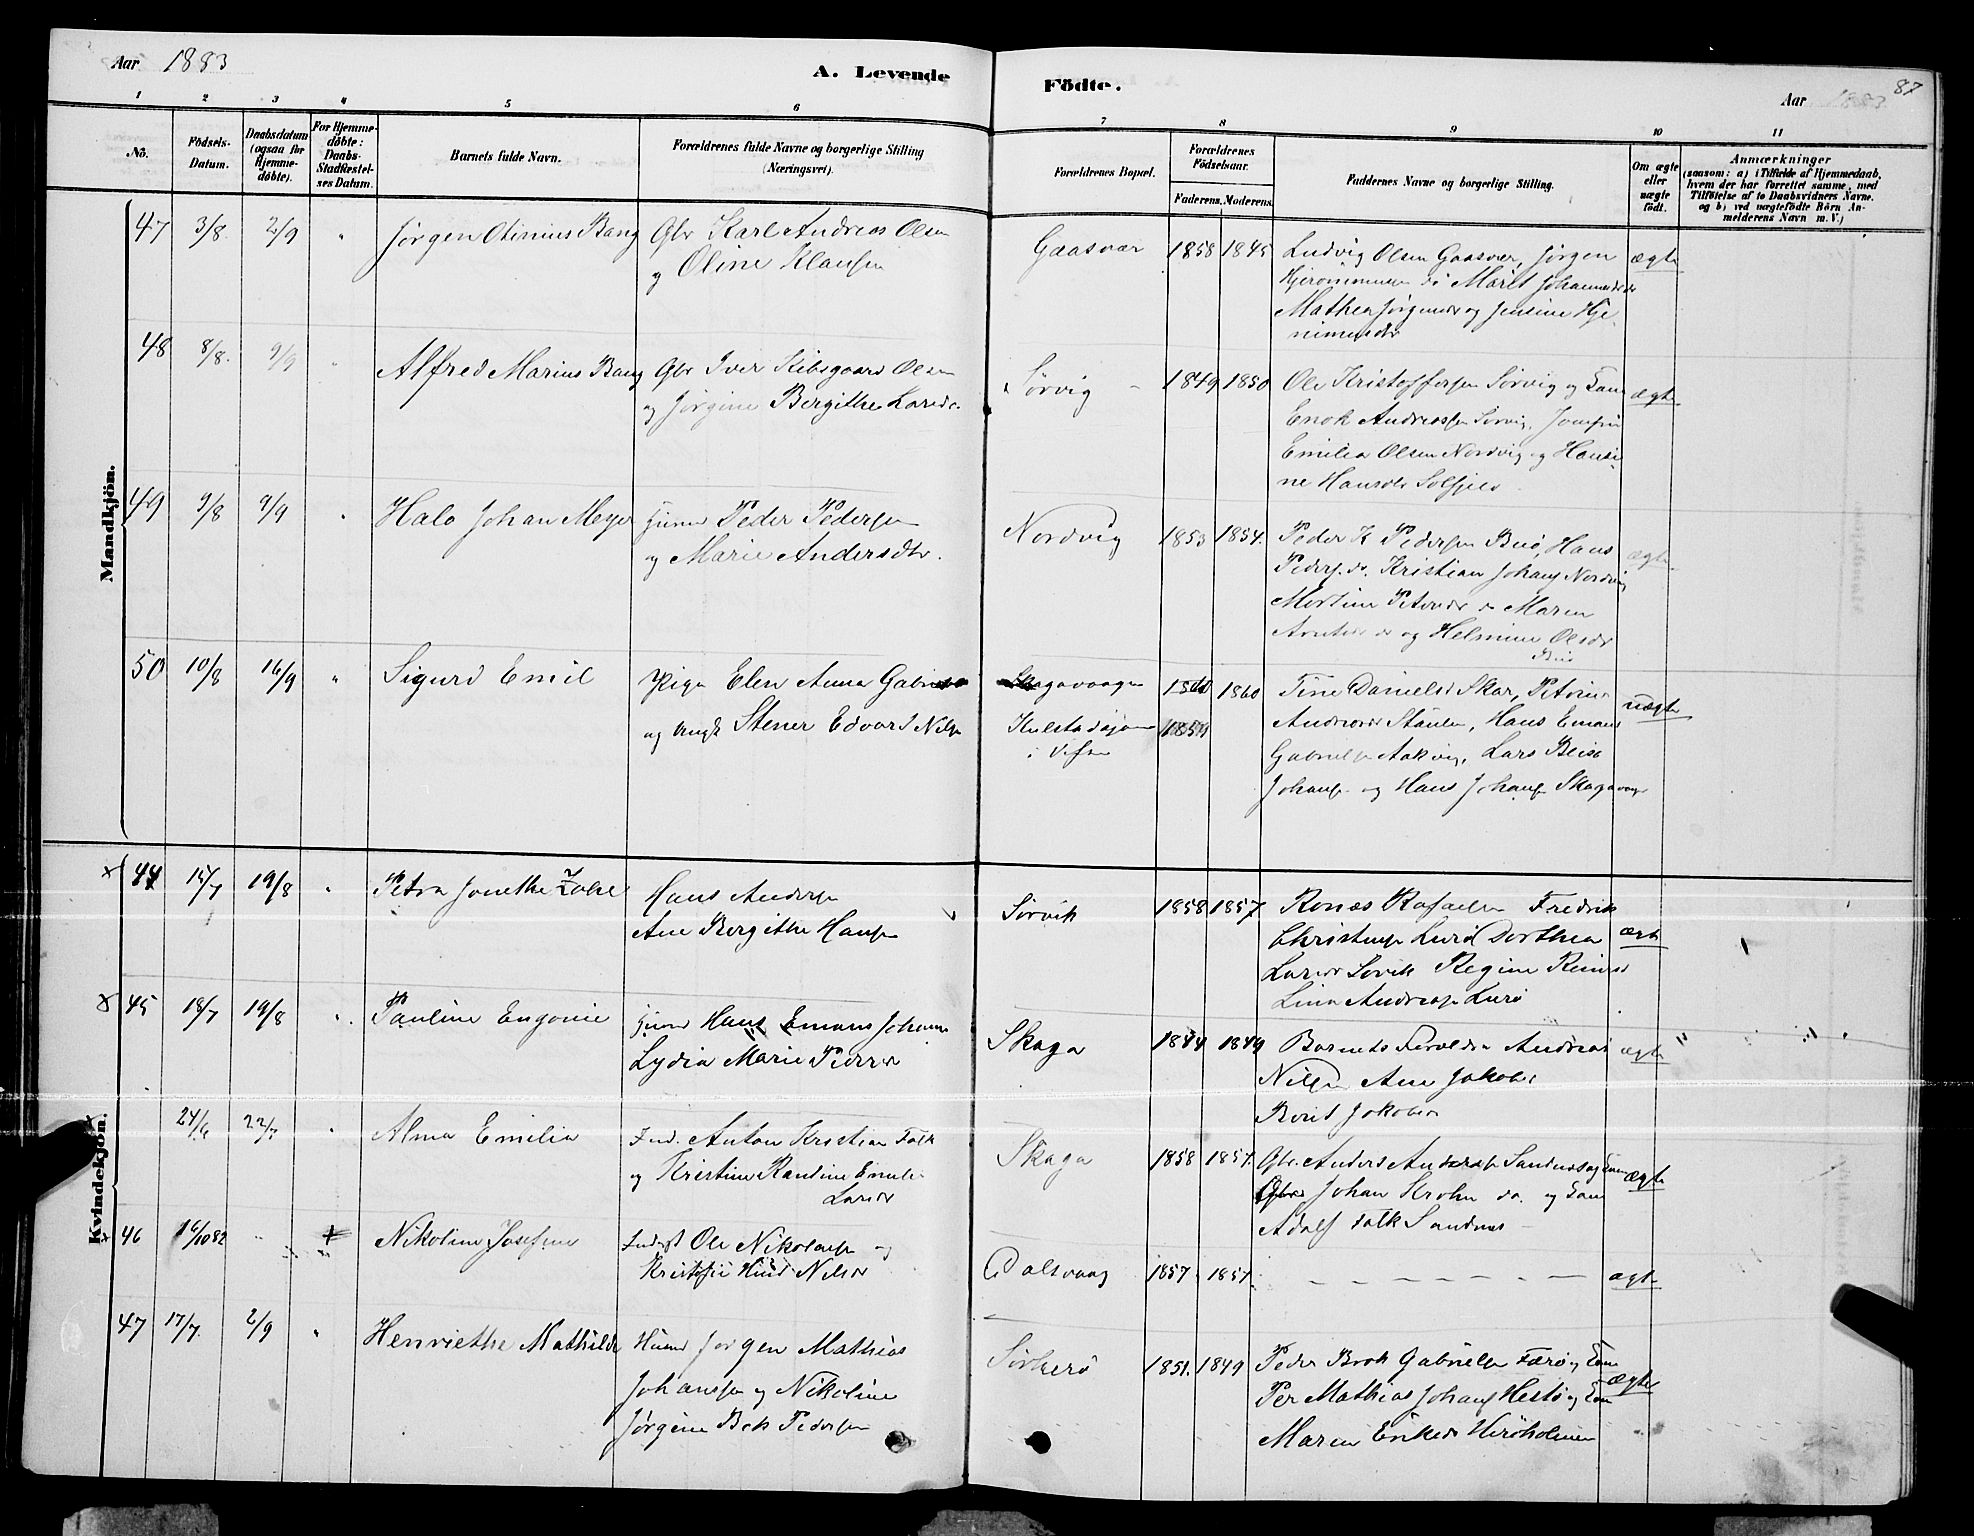 Aar 1883
A. Levende Födte.
Aar 1883
87
1 2 3 4 5 6 7 8 9 10 11
No.
Födsels-Datum.
Daabsdatum (ogsaa for Hjemme-döbte).
For Hjemme-döbte: Daabs-Stadfæstel-ses Datum.
Barnets fulde Navn.
Forældrenes fulde Navne og borgerlige Stilling (Næringsvei).
Forældrenes Bopæl.
Forældrenes Födselsaar.
Faderens. Moderens.
Faddernes Navne og borgerlige Stilling.
Om ægte eller uægte födt.
Anmærkninger
(saasom: a) i Tilfælde af Hjemmedaab,
hvem der har forrettet samme, med
Tilföielse af to Daabsvidners Navne,
og b) ved uægtefödte Börn An-
melderens Navn m. V.)
Mandkjön.
47 3/8 2/9 " Jørgen Otinius Bang Gbr Karl Andreas Olsen
og Oline Klausen
Gaasvær 1858 1845 Ludvig Olsen Gaasvær, Jørgen
Hjeronimusen do Marit Johannesdr
Mathea Jørgensdr og Jensine Hje-
nimusdr
ægte
48 8/8. 9/9 " Alfred Marius Bang Gbr Iver Kibsgaard Olsen
og Jørgine Bergithe Larsdr.
Sørvig 1849 1850 Ole Kristoffersen Sørvig og Kone
Enok Andreassen Sørvig, Josefine
Emilie Olsen Nordvig og Hansi-
ne Hansdr Solfjeld
ægte
49 9/8 9/9 " Halo Johan Meyer Huusm Peder Pedersen
og Marie Andersdtr.
Nordvig 1853 1854. Peder K Pedersen Buö, Hans
Peders. do. Kristian Johans Nordvig
Mortine Petersdr do Maren
Arntsdr do og Helmine Olsdr
Buö
ægte
50 10/8 16/9 " Sigurd Emil Pige Elen Anna Gabrielsd
og Ungk Stener Edvard Nilsen
Skagavaagen
Kulstadsjøen
i Vefsen
1860 1860
1859
Tine Danielsd Skar, Petrine
Andreasdr Støvlen, Hans Emanuel
Gabrielsen Aakvig, Lars Beisø
Johans og Hans Johans Skagavaag
uægte
Kvindekjön.
x 44 15/7 19/8 " Petra Jonethe Zahl Hans Andersen
Ane Bergithe Hansen
Sørvik 1858 1857 Ronæs Rafaelsen Fredrik
Christensen Lurö Dorthea
Larsdr Sørvik Regine Reinsd
Lina Andreasen Lurö
ægte
x 45 18/7 19/8 " Pauline Eugonie Huusm Hans Emans Johans
Lydia Marie Pedersdr
Skaga 1844 1849 Barnets Forældre Andreas
Nilsen Ane Jakobs
Berit Jakobsen
ægte
x 24/6 22/7 " Alma Emilia Ind. Anton Kristian Falk
og Kristine Randine Emilie
Larsdr
Skaga 1858 1857. Gbr. Anders Andreasen Sandnes og Kone
Gbr Johan Strohn do. og Kone
Adolf Falk Sandnes
ægte
46 16/10 82 " + Nikoline Josefine Inderst Ole Nikolaisen og
Kristofie Hind Nilsdr
Dalsvaag 1857 1857. — — — — — — —
ægte
47 17/7. 2/9 " Henriethe Mathilde Huusm Jørgen Mathias
Johansen og Nikoline
Jørgine Bek Pedersen
Sørherö 1851. 1849 Peder Brok Gabrielsen Færö og Kone
Per Mathias Johans Hestö og Kone
Maren Eriksdr Heröholmen
ægte